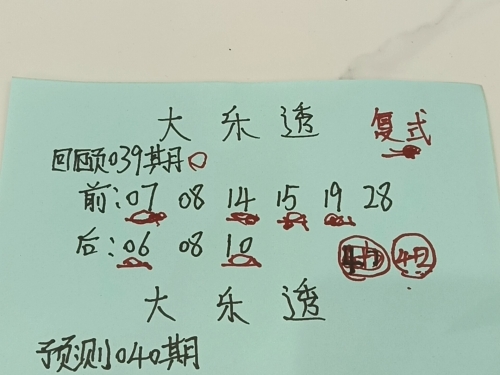 大乐透 复式
回顾039期
前:07 08 14 15 19 28
后:06 08 10 中 4+2
大乐透
预测040期